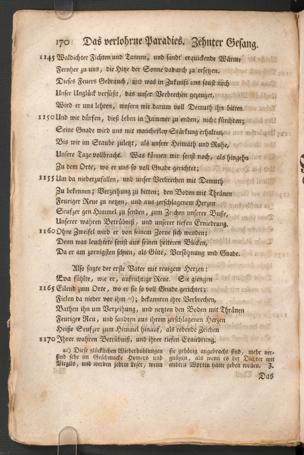 170 Das verlohrne Paradies. Zehnter Gesang.
1145 Waldichter Fichten und Tannen, und sendt erquickende Wärme
Fernher zu uns, die Hitze der Sonne dadurch zu ersetzen.
Dieses Feuers Gebrauch, und was in Zukunft uns sonst noch
Unser Unglück versüßt, das unser Verbrechen gezeuget,
Wird er uns lehren, wofern wir darum voll Demuth ihn bitten
1150 Und wir dürfen, dieß Leben in Jammer zu enden, nicht fürchten;
Seine Gnade wird uns mit mancherley Stärkung erhalten,
Bis wir im Staube zuletzt, als unsrer Heimath und Ruhe,
Unsre Tage vollbracht. Was können wir sonst noch, als hingehn
Zu dem Orte, wo er uns so voll Gnade gerichtet;
1155 Um da niederzufallen, und unser Verbrechen mit Demuth
Zu bekennen; Verzeihung zu bitten; den Boden mit Thränen
Feuriger Reue zu netzen, und aus zerschlagenem Herzen
Seufzer gen Himmel zu senden, zum Zeichen unserer Buße,
Unserer wahren Betrübniß, und unserer tiefen Erniedrung.
1160 Ohne Zweifel wird er von seinem Zorne sich wenden;
Denn was leuchtete sonst aus seinen heiteren Blicken,
Da er am zornigsten schien, als Güte, Versöhnung und Gnade.
Also sagte der erste Vater mit reuigem Herzen:
Eva fühlte, wie er, aufrichtige Reue. Sie giengen
1165 Eilend zum Orte, wo er sie so voll Gnade gerichtet;
Fielen da nieder vor ihm bekannten ihre Verbrechen,
Bathen ihn um Verzeihung, und netzten den Boden mit Thränen
Feuriger Reu, und sandten aus ihrem zerschlagenen Herzen
Heiße Seufzer zum Himmel hinauf, als redende Zeichen
1170 Ihrer wahren Betrübniß, und ihrer tiefen Erniedrung.
Diese glücklichen Wiederhohlungen
sind sehr im Geschmacke Homers und
Virgils, und werden jedem Leser, wenn
sie gehörig angebracht sind, mehr vergnügen, als wenn es der Dichter mit
andern Worten hätte geben wollen. Z.
Das